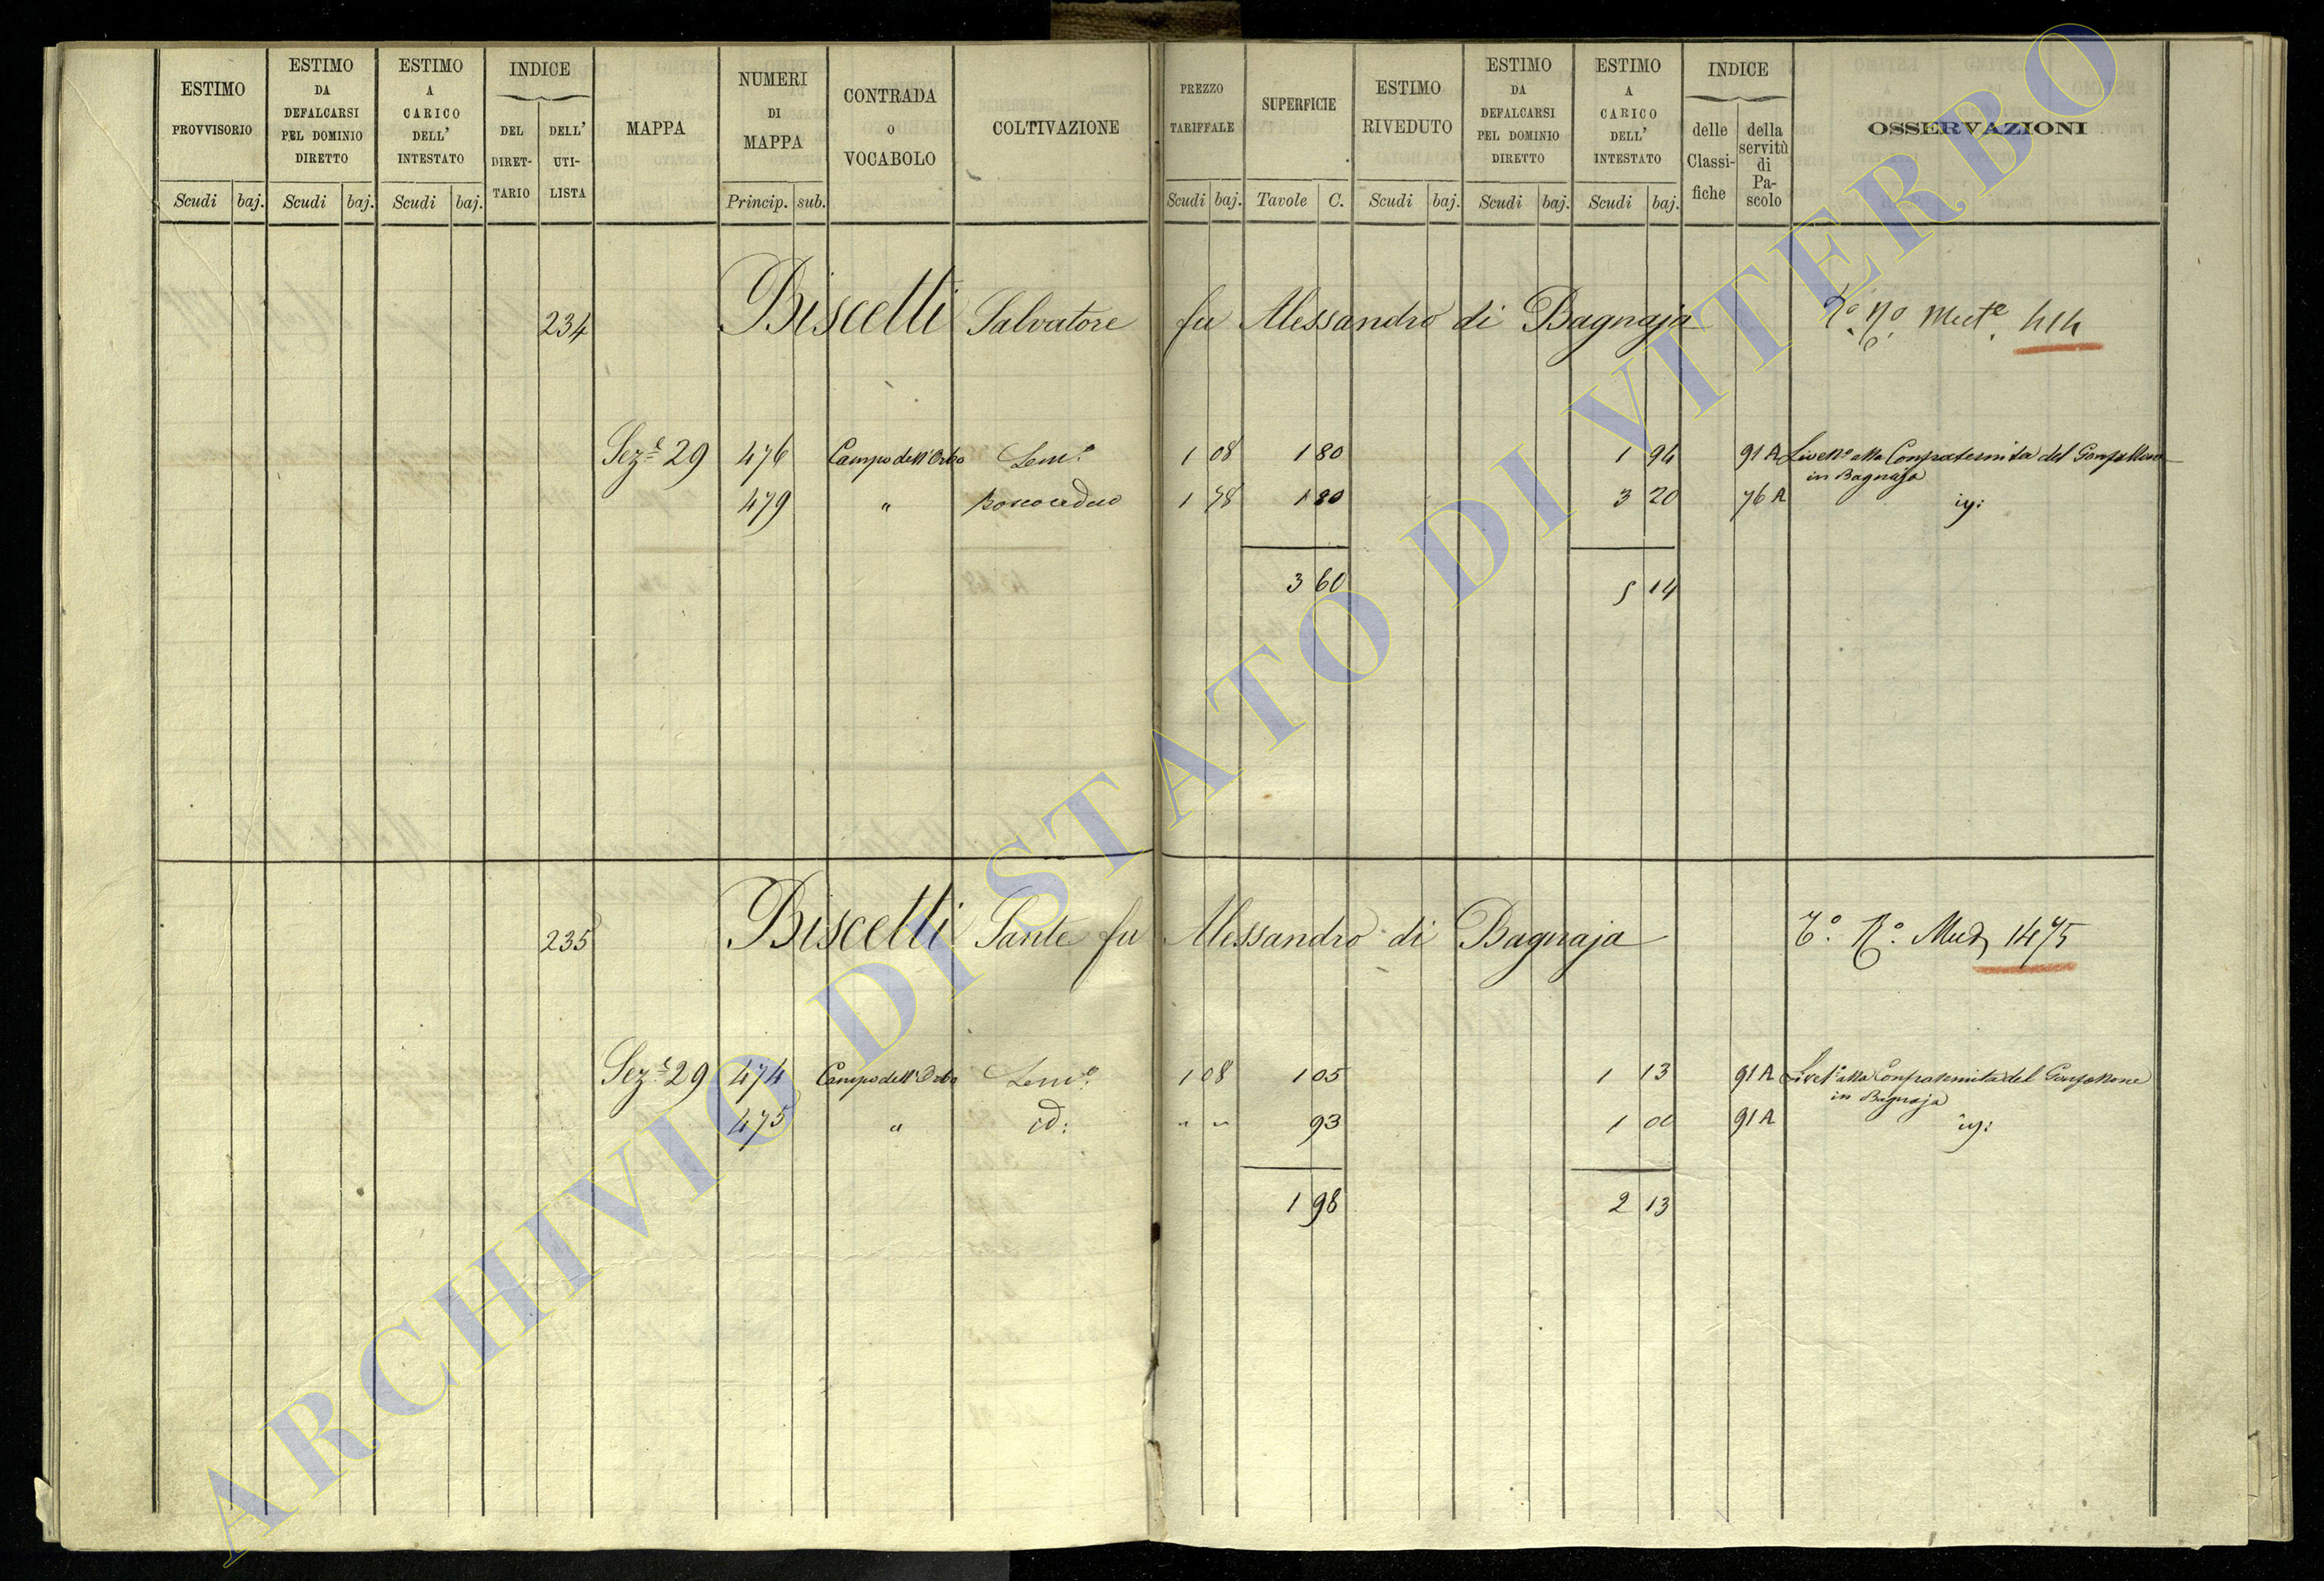 ESTIMO PROVVISORIO
ESTIMO DA DEFALCARSI PEL DOMINIO DIRETTO
ESTIMO A CARICO DELL' INTESTATO
INDICE
DEL DIRET-TARIO
DELL' UTI-LISTA
MAPPA
NUMERI DI MAPPA
CONTRADA O VOCABOLO
COLTIVAZIONE
PREZZO TARIFFALE
SUPERFICIE
ESTIMO RIVEDUTO
ESTIMO DA DEFALCARSI PEL DOMINIO DIRETTO
ESTIMO A CARICO DELL' INTESTATO
INDICE
delle Classi-fiche
della servitù di Pa-scolo
OSSERVAZIONI
Scudi baj. Scudi baj. Scudi baj. Princip. sub. Scudi baj. Tavole C. Scudi baj. Scudi baj. Scudi baj.
234 Biscetti Salvatore fu Alessandro di Bagnaja
Sez.e 29 476 Campo dell'Orto Sem.o 1 08 1 80 1 94 91 A Livell.o alla Confraternita del Gonfallone
in Bagnaja
479 " Bosco ceduo 1 78 1 80 3 20 76 A
3 60 5 14
235 Biscetti Sante fu Alessandro di Bagnaja 1475
Sez.e 29 474 Campo dell'Orto Sem.o 1 08 1 05 1 13 91 A Livel.o alla Confraternita del Gonfallone
in Bagnaja
475 " id: " " 93 1 00 91 A
1 98 2 13
ARCHIVIO DI STATO DI VITERBO